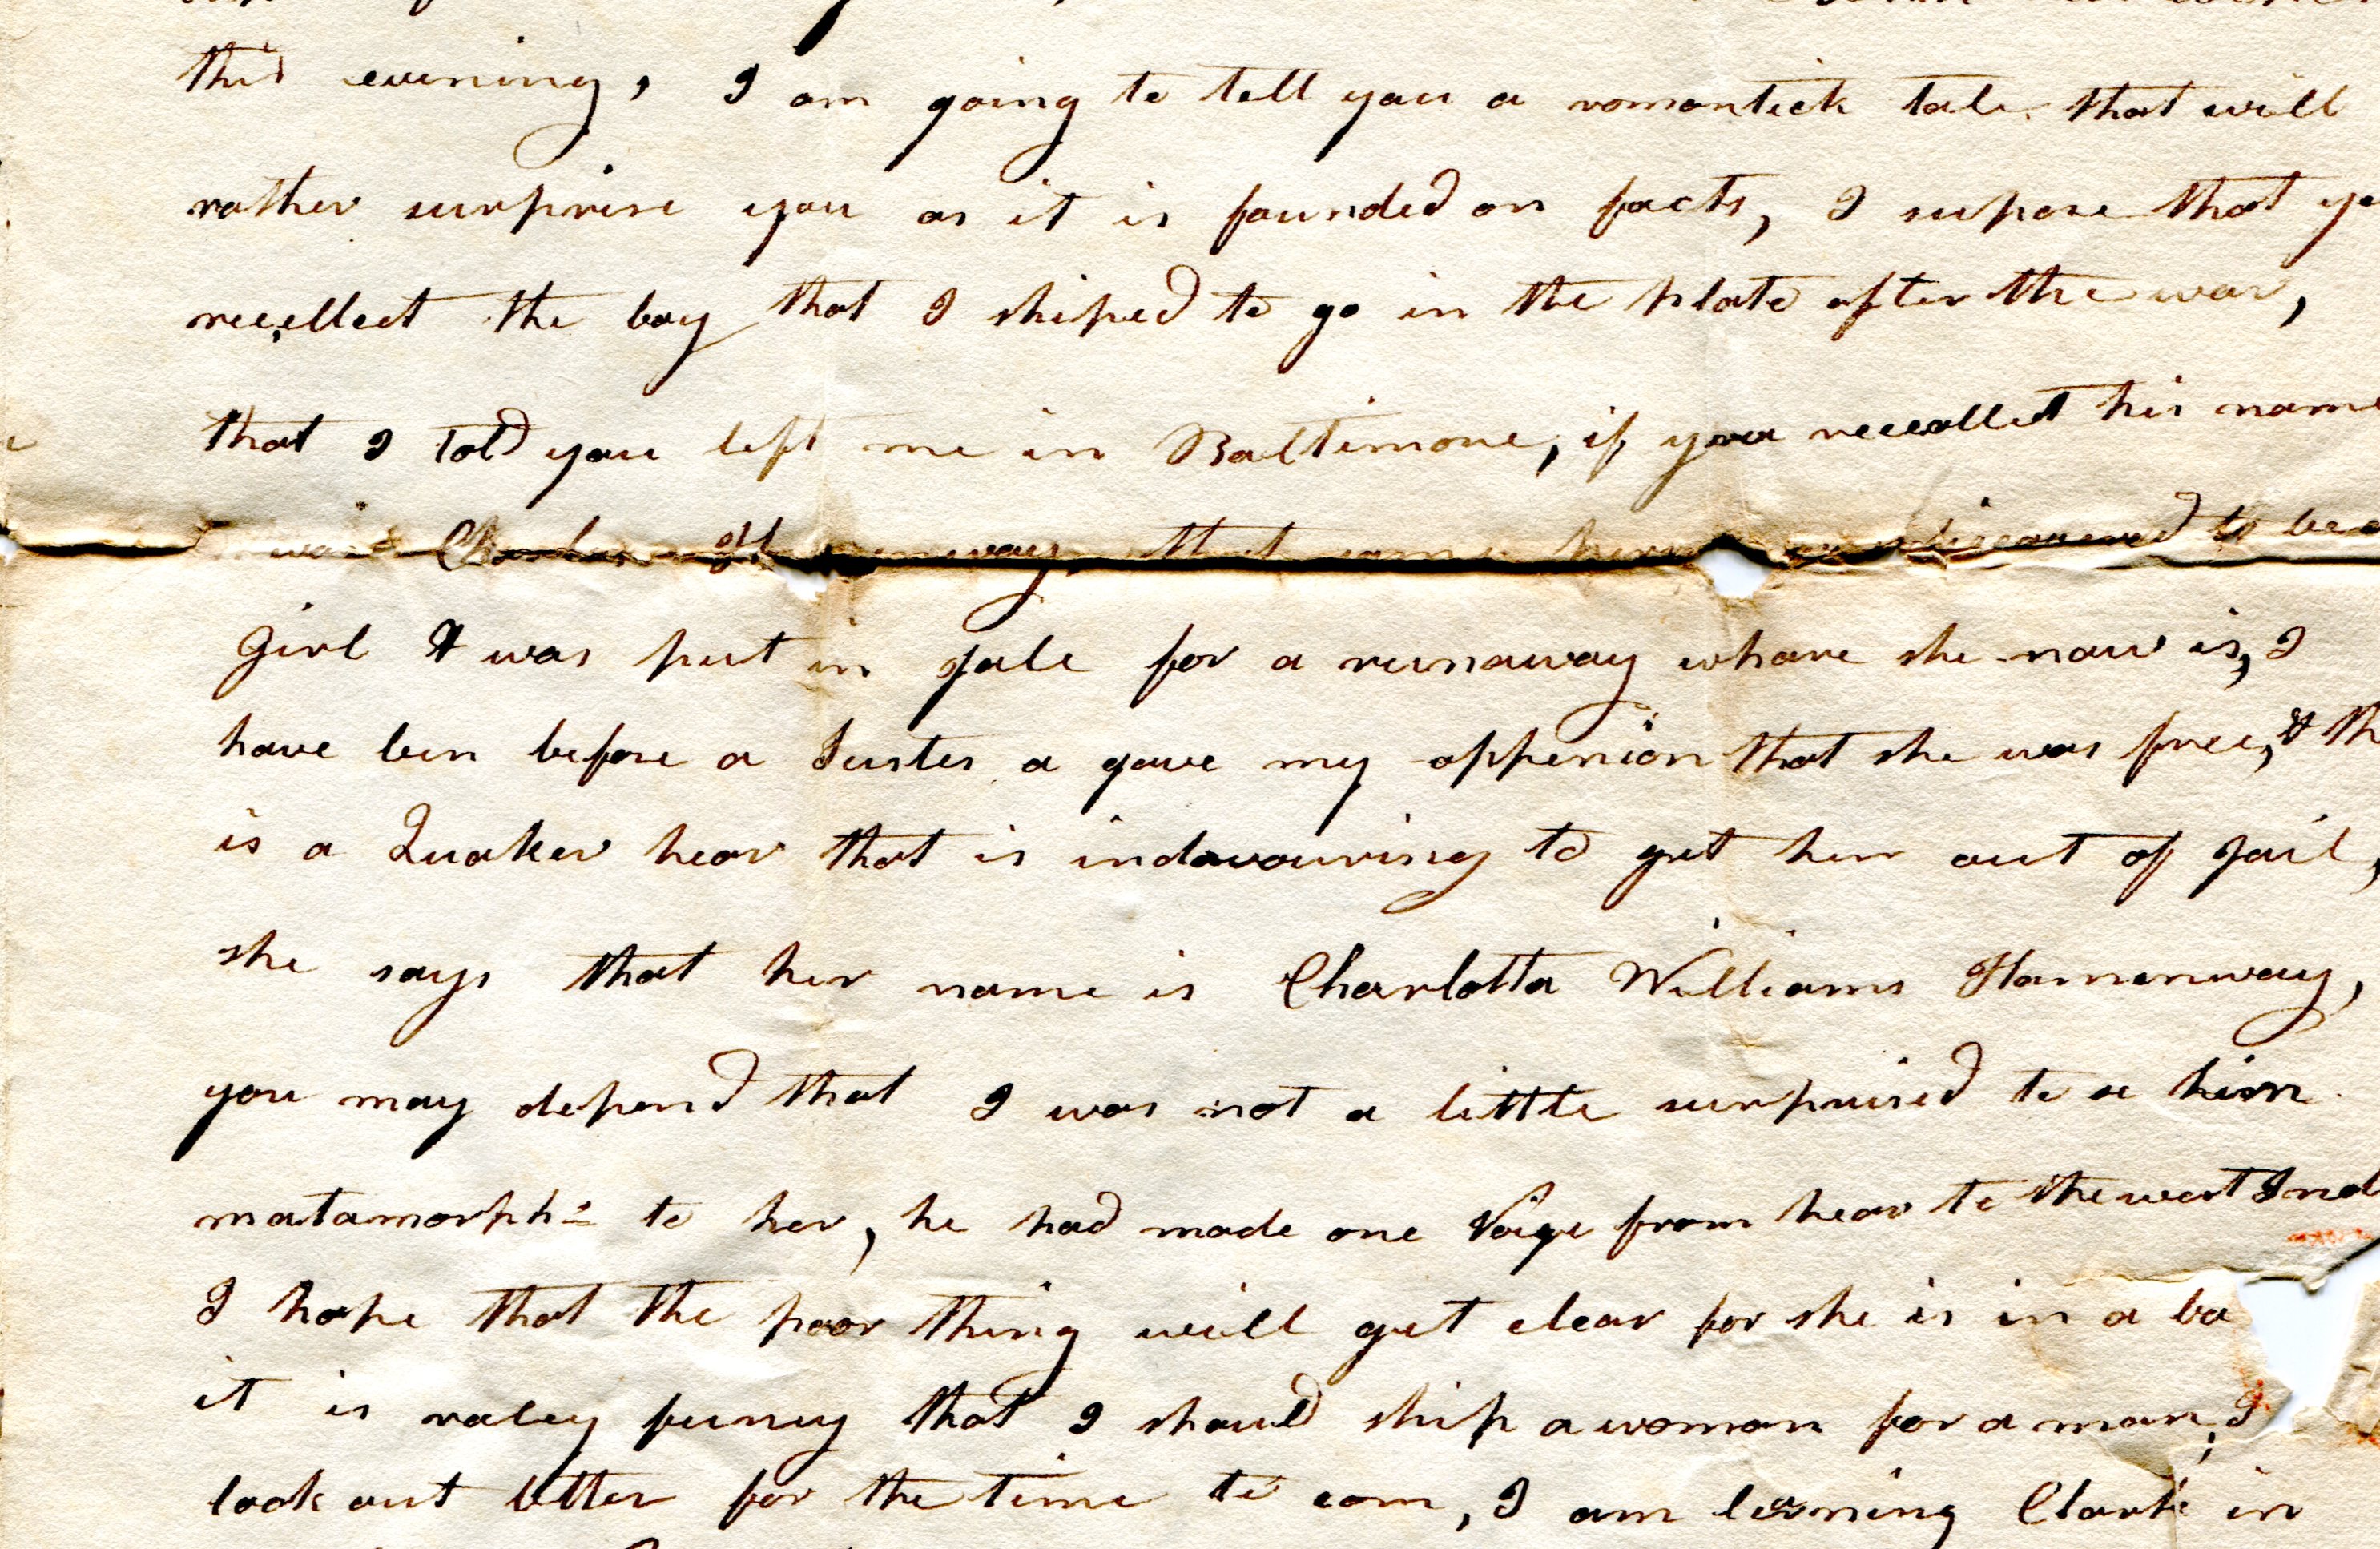 this evening, I am going to tell you a romantick tale that will
rather surprise you as it is founded on facts, I supose that yo
recellect the boy that I shiped to go in the Plato after the war,
that I told you left me in Baltimore, if you reccollect his name
was Charles that came discovered to be a
Girl & was put in Jale for a runaway whare she now is, I
have ben before a Justes a gave my oppenion that she was free, & th
is a Quaker hear that is indavouring to get her out of Jail,
she says that her name is Charlotta Williams Hamenway,
you may depend that I was not a little surprised to se him
matamorphs to her, he had made one Voige from hear to the west Ind
I hope that the poor thing will get clear for she is in a ba
it is raley funny that I should ship a woman for a man, I
look out better for the time to com, I am lerning Clark in